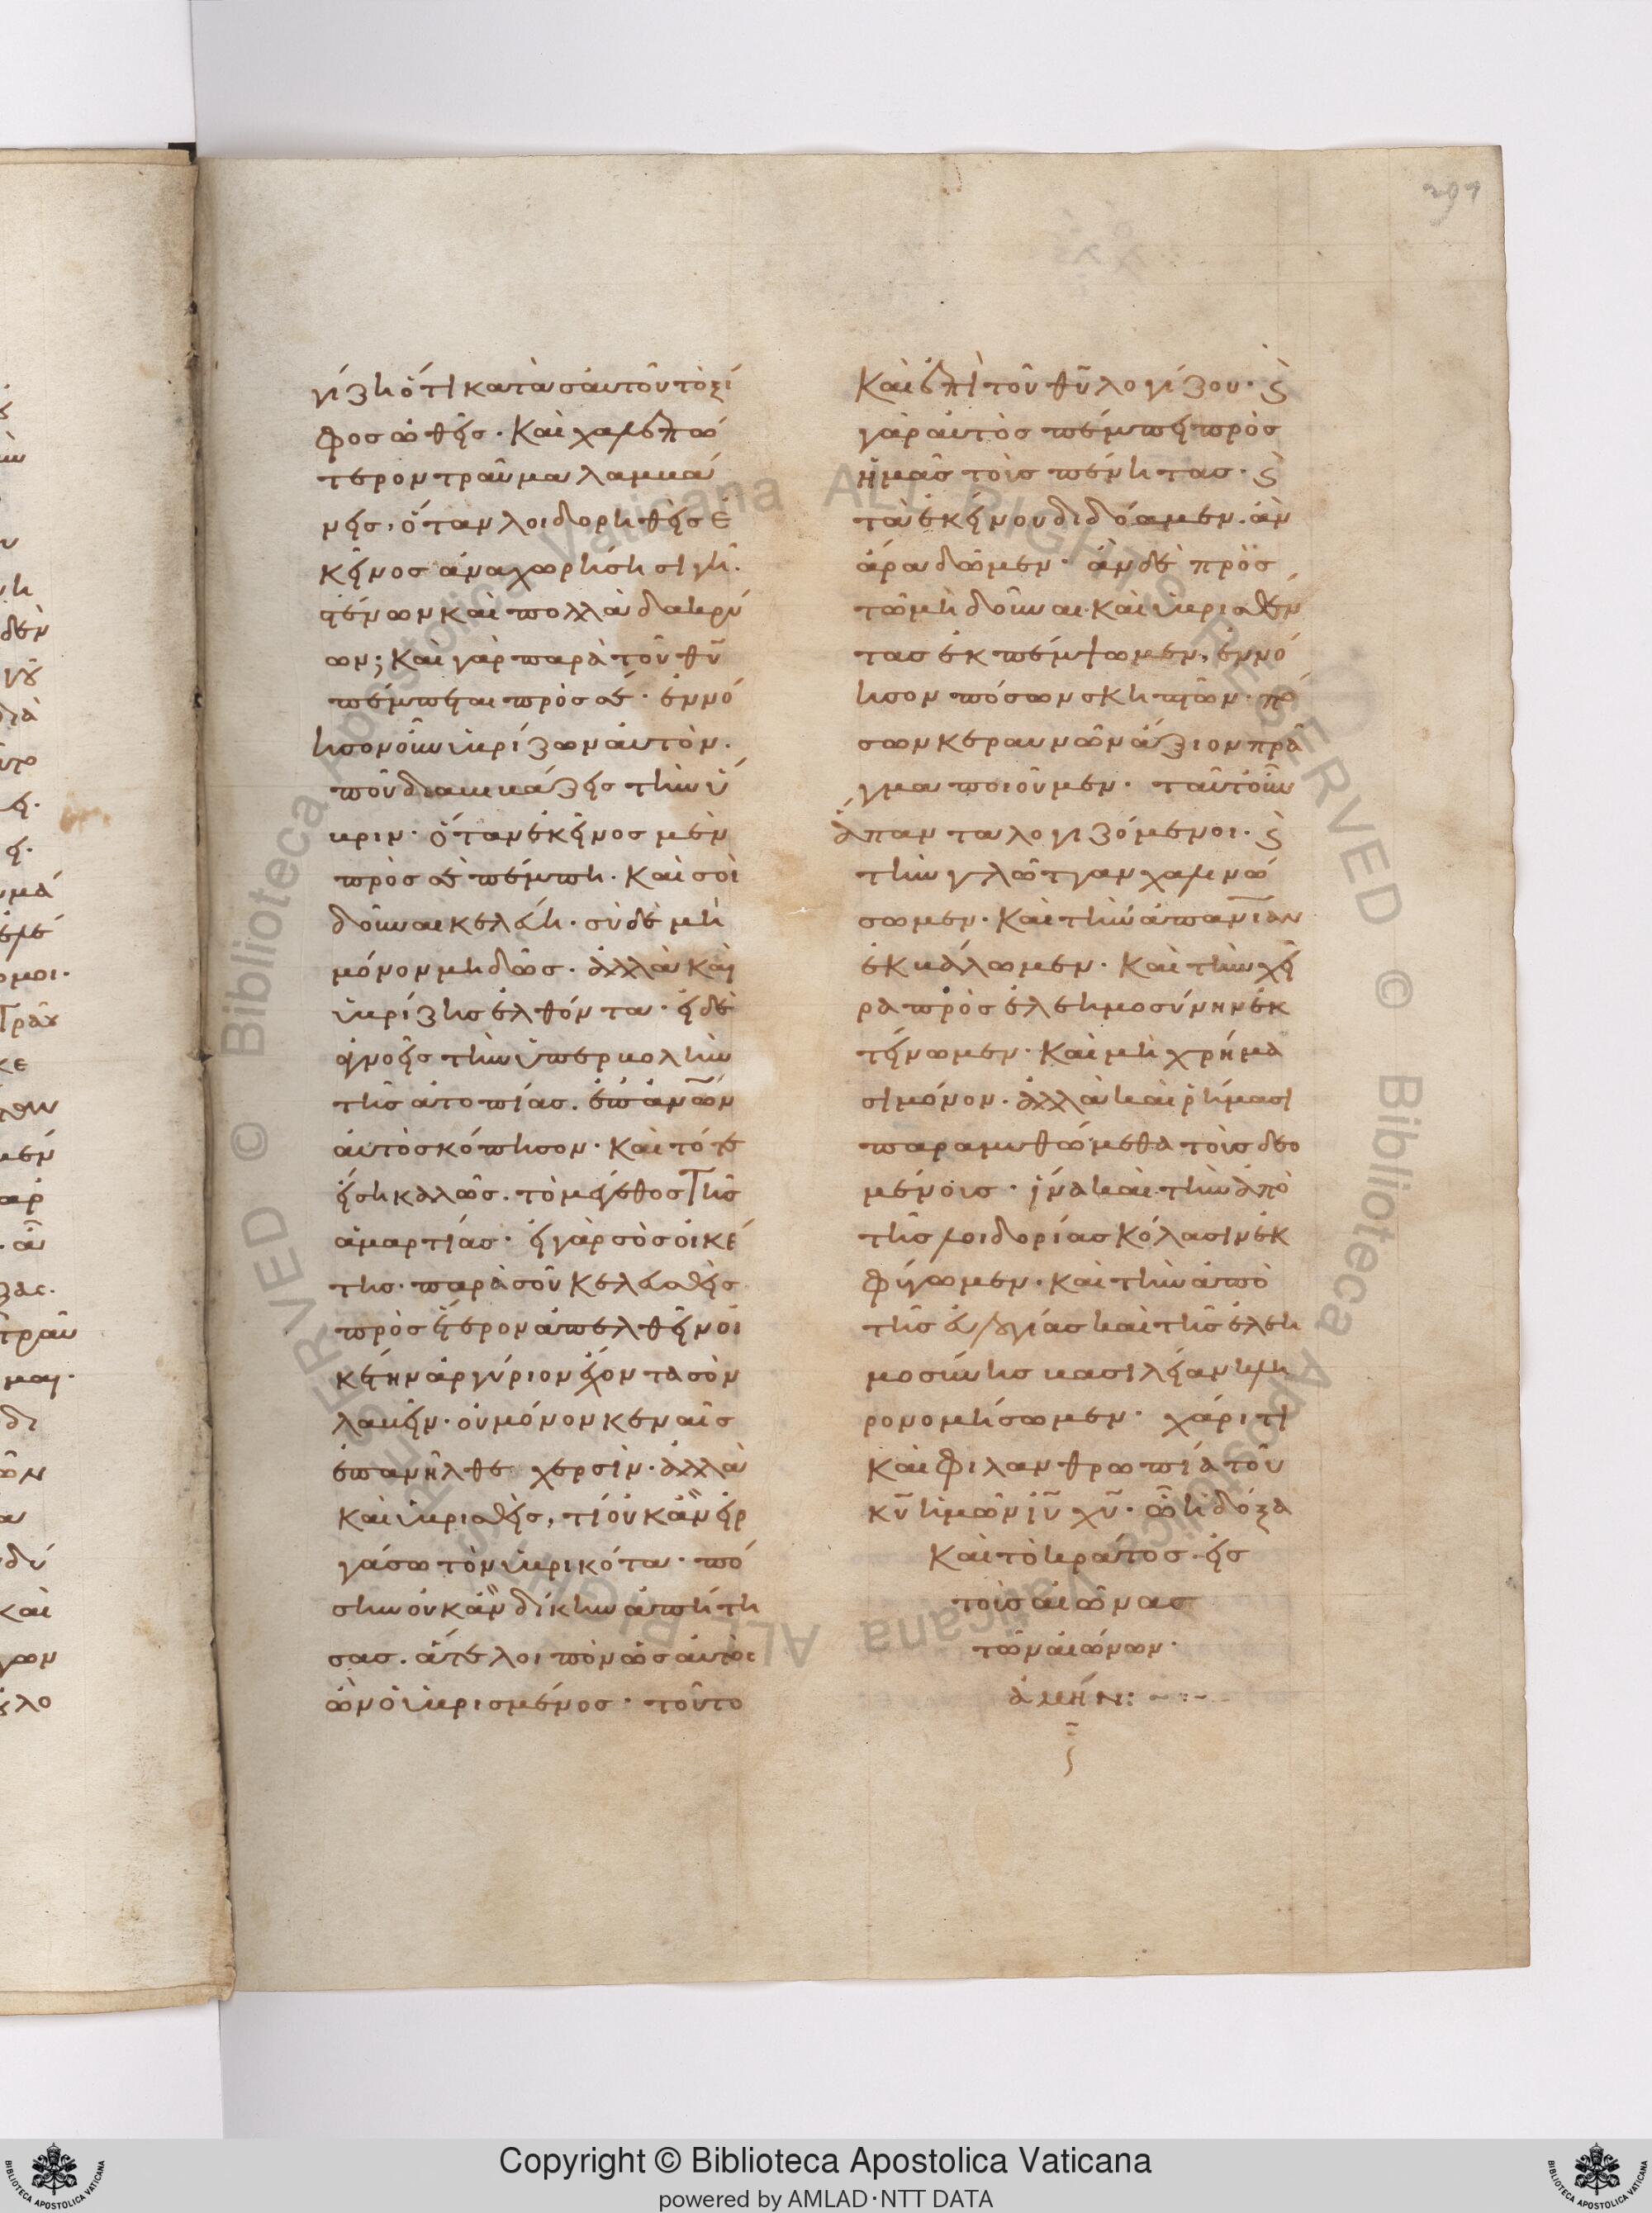 391
γίζη ὅτι κατὰ σαυτοῦ τὸ ξί
φος ὠθεῖς· Καὶ χαλεπώ
τερον τραῦμα λαμβά
νεις, ὅταν λοιδορηθεὶς ἐ
κεῖνος ἀναχωρήσῃ σιγῇ.
στένων καὶ πολλὰ δακρύ
ων; Καὶ γὰρ παρὰ τοῦ θῦ
πέμπεται πρὸς σέ· ἐννό
ησον οὖν ὑβρίζων αὐτὸν.
ποῦ διαβιβάζεις τὴν ὕ
βριν· ὅταν ἐκεῖνος μὲν
πρὸς σὲ πέμπῃ. Καὶ σοὶ
δοῦναι κελεύῃ· σὺ δὲ μὴ
μόνον μὴ δῷς. ἀλλὰ καὶ
ὑβρίζῃς ἐλθόντα· εἰ δὲ
ἀγνοεῖς τὴν ὑπερβολὴν
τῆς ἀτοπίας. ἐπ ἀνων
αὐτὸ σκόπησον· Καὶ τότε
εἴσῃ καλῶς. τὸ μέγεθος τῆς
ἁμαρτίας· εἰ γὰρ σὸς οἰκέ
της· παρὰ σοῦ κελευσθεὶς
πρὸς ἕτερον ἀπελθεῖν οἰ
κέτην ἀργύριον ἔχοντα σὸν
λαβεῖν· οὐ μόνον κεναῖς
ἐπανῆλθε χερσὶν· ἀλλὰ
καὶ ὑβρισθεὶς, τί οὐκ ἂν εἰρ
γάσω τὸν ὑβρικότα· πό
σην οὐκ ἂν δίκην ἀπῄτη
σας. ἅτε λοιπὸν ὡς αὐτὸς
ὢν ὁ ὑβρισμένος· τοῦτο
Καὶ ἐπὶ τοῦ θῦ λογίζου· Ϛ
γὰρ αὐτὸς πέμπει πρὸς
ἡμᾶς τοὺς πένητας· Ϛ
τὰ ἐκείνου δίδόαμεν. ἂν
ἄρα δῶμεν· ἂν δὲ πρὸς
τῶ μὴ δοῦναι· καὶ ὑβρισθέν
τας ἐκπέμψωμεν, ἐννό
ησον πόσων σκηπτῶν· πό
σων κεραυνῶν ἄξιον πρᾶ
γμα ποιοῦμεν· ταῦτ οὖν
ἅπαντα λογιζόμενοι· Ϛ
τὴν γλῶτταν χαλινώ
σωμεν· Καὶ τὴν ἀπανίαν
ἐκβάλωμεν· Καὶ τὴν χεῖ
ρα πρὸς ἐλεημοσύνην ἐκ
τείνωμεν· Καὶ μὴ χρήμα
σι μόνον. ἀλλὰ καὶ ῥήμασι
παραμυθώμεθα τοὺς δεο
μένους· ἵνα καὶ τὴν ἀπὸ
τῆς λοιδορίας κόλασιν ἐκ
φύγωμεν· καὶ τὴν ἀπὸ
τῆς εὐλογίας καὶ τῆς ἐλεη
μοσύνης βασιλείαν κλη
ρονομήσωμεν· χάριτι
καὶ φιλανθρωπίᾳ τοῦ
κῦ ἡμῶν ἰῦ χῦ· ᾧ ἡ δόξα
Καὶ τὸ κράτος· εἰς
τοὺς αἰῶνας
τῶν αἰώνων·
ἀμήν:
Copyright © Biblioteca Apostolica Vaticana
powered by AMLAD·NTT DATA